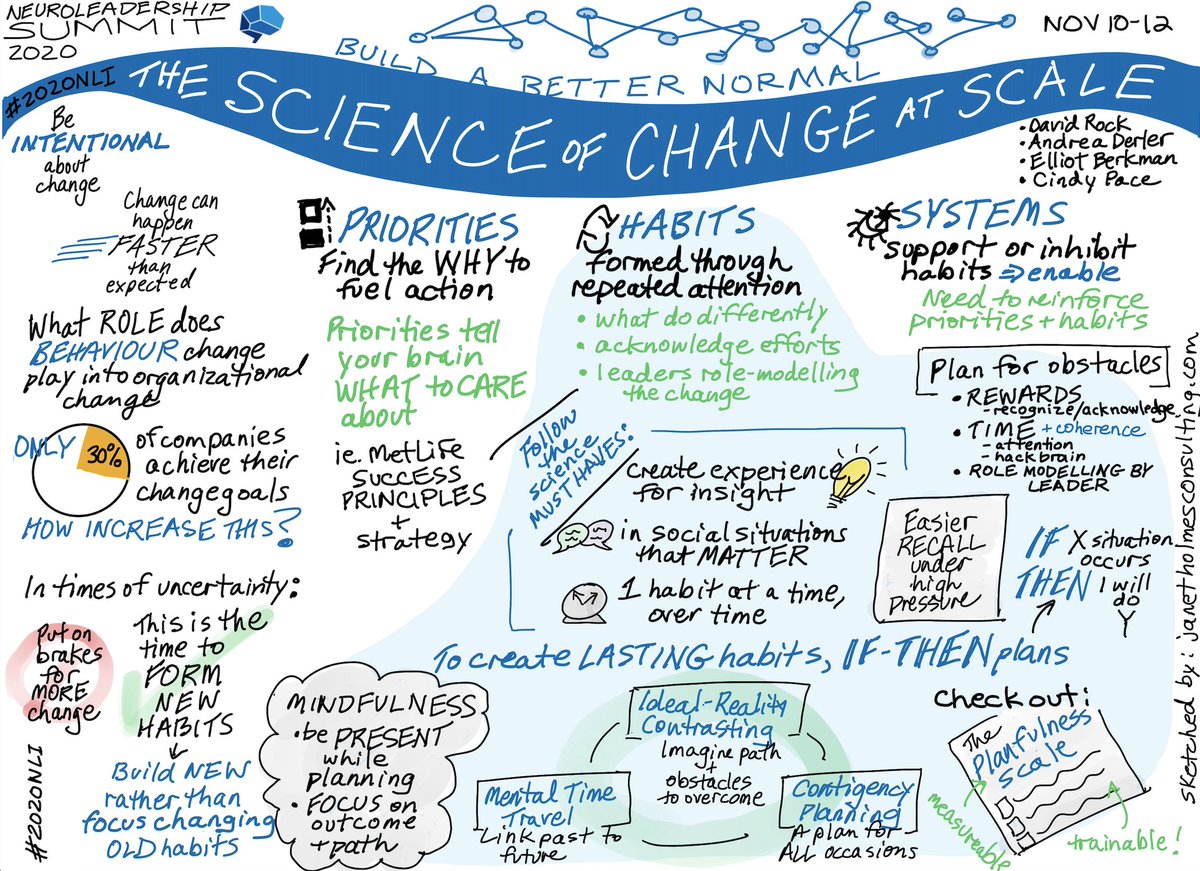 NEUROLEADERSHIP
SUMMIT
2020
NOV 10-12
BUILD A BETTER NORMAL
#2020NLI
THE SCIENCE OF CHANGE AT SCALE
• David Rock
• Andrea Derler
• Elliot Berkman
• Cindy Pace
Be
INTENTIONAL
about
change
Change can
happen
FASTER
than
expected
What ROLE does
BEHAVIOUR change
play into organizational
change
ONLY
30%
of companies
achieve their
change goals
HOW INCREASE THIS?
In times of uncertainty:
Put on
brakes
for
MORE
change
This is the
time to
FORM
NEW
HABITS
Build NEW
rather than
focus changing
OLD habits
#2020NLI
PRIORITIES
Find the WHY to
fuel action
Priorities tell
your brain
WHAT to CARE
about
ie. MetLife
SUCCESS
PRINCIPLES
+
strategy
HABITS
formed through
repeated attention
• what do differently
• acknowledge efforts
• leaders role-modelling
the change
Follow
the
science
MUST HAVES:
create experience
for insight
in social situations
that MATTER
1 habit at a time,
over time
SYSTEMS
support or inhibit
habits ⇒ enable
Need to reinforce
priorities + habits
Plan for obstacles
• REWARDS
- recognize/acknowledge
• TIME + coherence
- attention
- hack brain
• ROLE MODELLING BY
LEADER
Easier
RECALL
under
high
pressure
IF X situation
occurs
THEN I will
do
Y
To create LASTING habits, IF-THEN plans
MINDFULNESS
• be PRESENT
while
planning
• FOCUS on
outcome
+ path
Ideal-Reality
Contrasting
Imagine path
+
obstacles
to overcome
Mental Time
Travel
Link past to
future
Contigency
Planning
A plan for
ALL occasions
Check out:
The
Planfulness
Scale
measureable
trainable!
sketched by: janetholmesconsulting.com